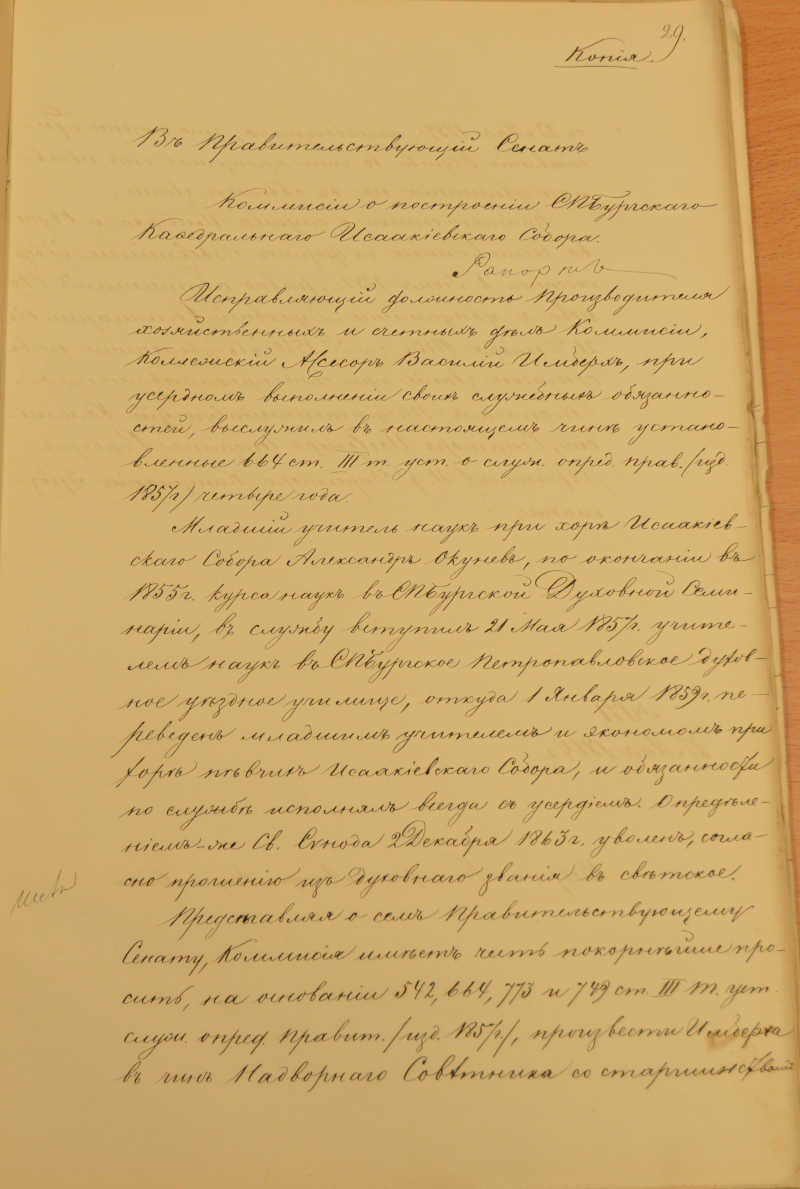 29.
Копія.
Въ Правительствующій Сенатъ
Коммисіи о построеніи СПБургскаго
Каѳедральнаго Исаакіевскаго Собора.
Рапортъ
Исправляющій должность Производителя
хозяйственныхъ и счетныхъ дѣлъ Коммисіи,
Коллежскій Ассесоръ Василій, при
усердномъ выполненіи своихъ служебныхъ обязанно-
стей, выслужилъ въ настоящемъ чинѣ устано-
вленные 664 ст. III т. уст. о служ. опред. прав. /изд.
1857 г/ четыре года.
Младшій учитель наукъ при хорѣ Исаакіев-
скаго Собора Александръ Окуневъ, по окончаніи въ
1855 г. курса наукъ въ СПБургской Духовной Семи-
наріи, въ службу вступилъ 21 Мая 1857 г. учите-
лемъ наукъ въ СПБургское Петропавловское духов-
ное уѣздное училище, откуда 1 Января 1859 г. пе-
реведенъ младшимъ учителемъ и экономомъ при
хорѣ пѣвчихъ Исаакіевскаго Собора, и обязанности
по службѣ исполнялъ всегда съ усердіемъ. Опредѣле-
ніемъ-же Св. Сѵнода 2 Декабря 1863 г. уволенъ, согла-
сно прошенію изъ духовнаго званія въ свѣтское.
Представляя о семъ Правительствующему
Сенату, Коммисія имѣетъ честь покорнѣйше про-
сить, на основаніи 542, 664, 773 и 749 ст. III т. уст.
служ. опред. Правит. /изд. 1857 г/, произвести
въ чинъ Надворнаго Совѣтника со старшинствомъ